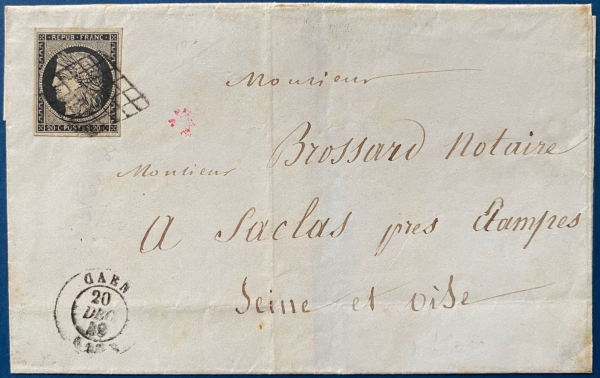 REPUB FRANC
20 C POSTES 20 C
Monsieur
Monsieur Brossard Notaire
A Saclas pres Etampes
Seine et Oise
CAEN
20
DEC